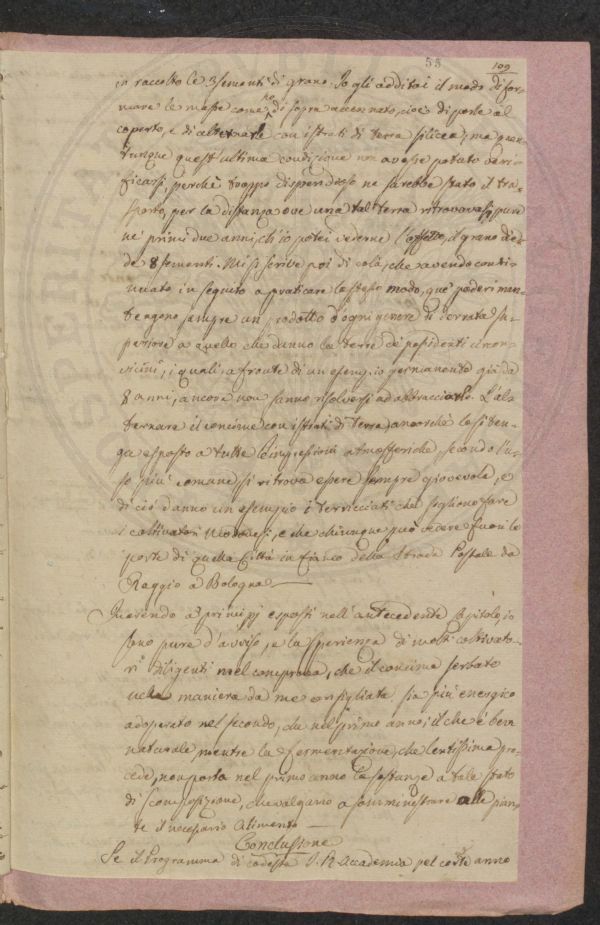 55 109
in raccolto le 3 sementi di grano. Io gli additai il modo di for-
mare le masse come ho di sopra accennato, cioè di porle al
coperto, e di alternarle con istrati di terra silicea; ma quan-
tunque quest'ultima condizione non avesse potuto veri-
ficarsi, perchè troppo dispendioso ne sarebbe stato il tra-
sporto, per la distanza ove una tal terra ritrovavasi, pure
ne' primi due anni, ch'io potei vederne l'effetto, il grano die-
de 8 sementi. Mi si scrive poi di colà, che avendo conti-
nuato in seguito a praticare lo stesso modo, que' poderi man-
tengono sempre un prodotto d'ogni genere di derrata su-
periore a quello che danno le terre di possidenti
vicini, i quali a fronte di un esempio permanente già da
8 anni, ancora non sanno risolversi ad abbracciarlo. L'al-
ternare il concime con istrati di terra, ancorchè lo si ten-
ga esposto a tutte l'impressioni atmosferiche, secondo l'u-
so più comune si ritrova essere sempre giovevole, e
di ciò danno un esempio i terricciati che sogliono fare
i coltivatori Modonesi, e che chiunque può vedere fuori le
porte di quella Città in fianco della Strada Postale da
Reggio a Bologna
Inerendo a' principj esposti nell'antecedente Capitolo, io
sono pure d'avviso, e la sperienza di molti coltivato-
ri diligenti mel comprova, che il concime serbato
nella maniera da me consigliata sia più energico
adoperato nel secondo, che nel primo anno; il che è ben
naturale mentre la fermentazione, che lentissima pro-
cede, non porta nel primo anno le sostanze a tale stato
di scomposizione, che valgano a somministrare alle pian-
te il necessario alimento
Conclusione
Se il Programma di codesta I. R. Accademia pel corr.e anno